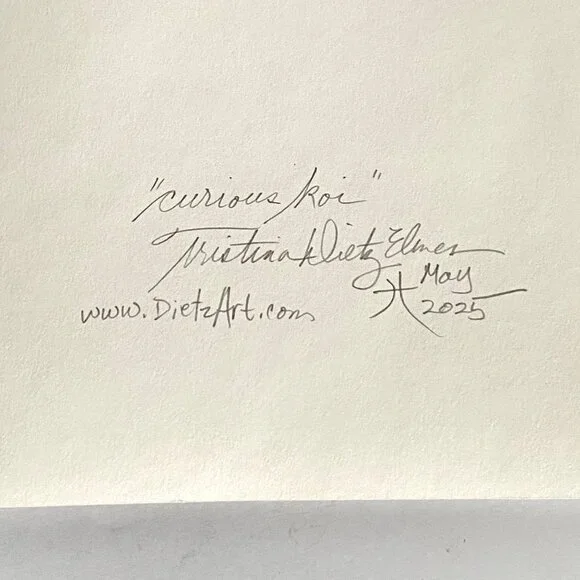 "curious koi"
Tristina Dietz Elmes
www.DietzArt.com
May
2025